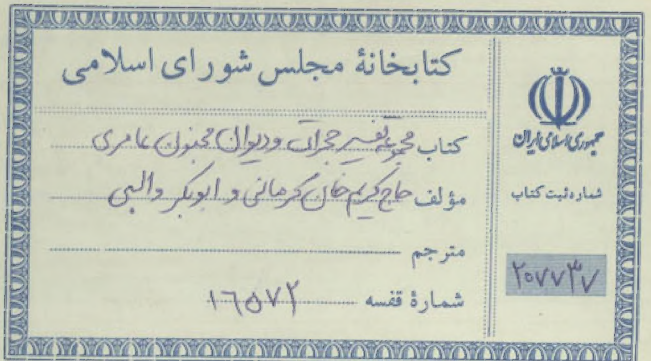 کتابخانهٔ مجلس شورای اسلامی
کتاب مجموعه تفسیر حجرات و دیوان مجنون عامری
مؤلف حاج کریم خان کرمانی و ابوبکر والبی
مترجم
شمارهٔ قفسه ۱۶۵۷۲
جمهوری اسلامی ایران
شماره ثبت کتاب
۲۰۷۷۳۷